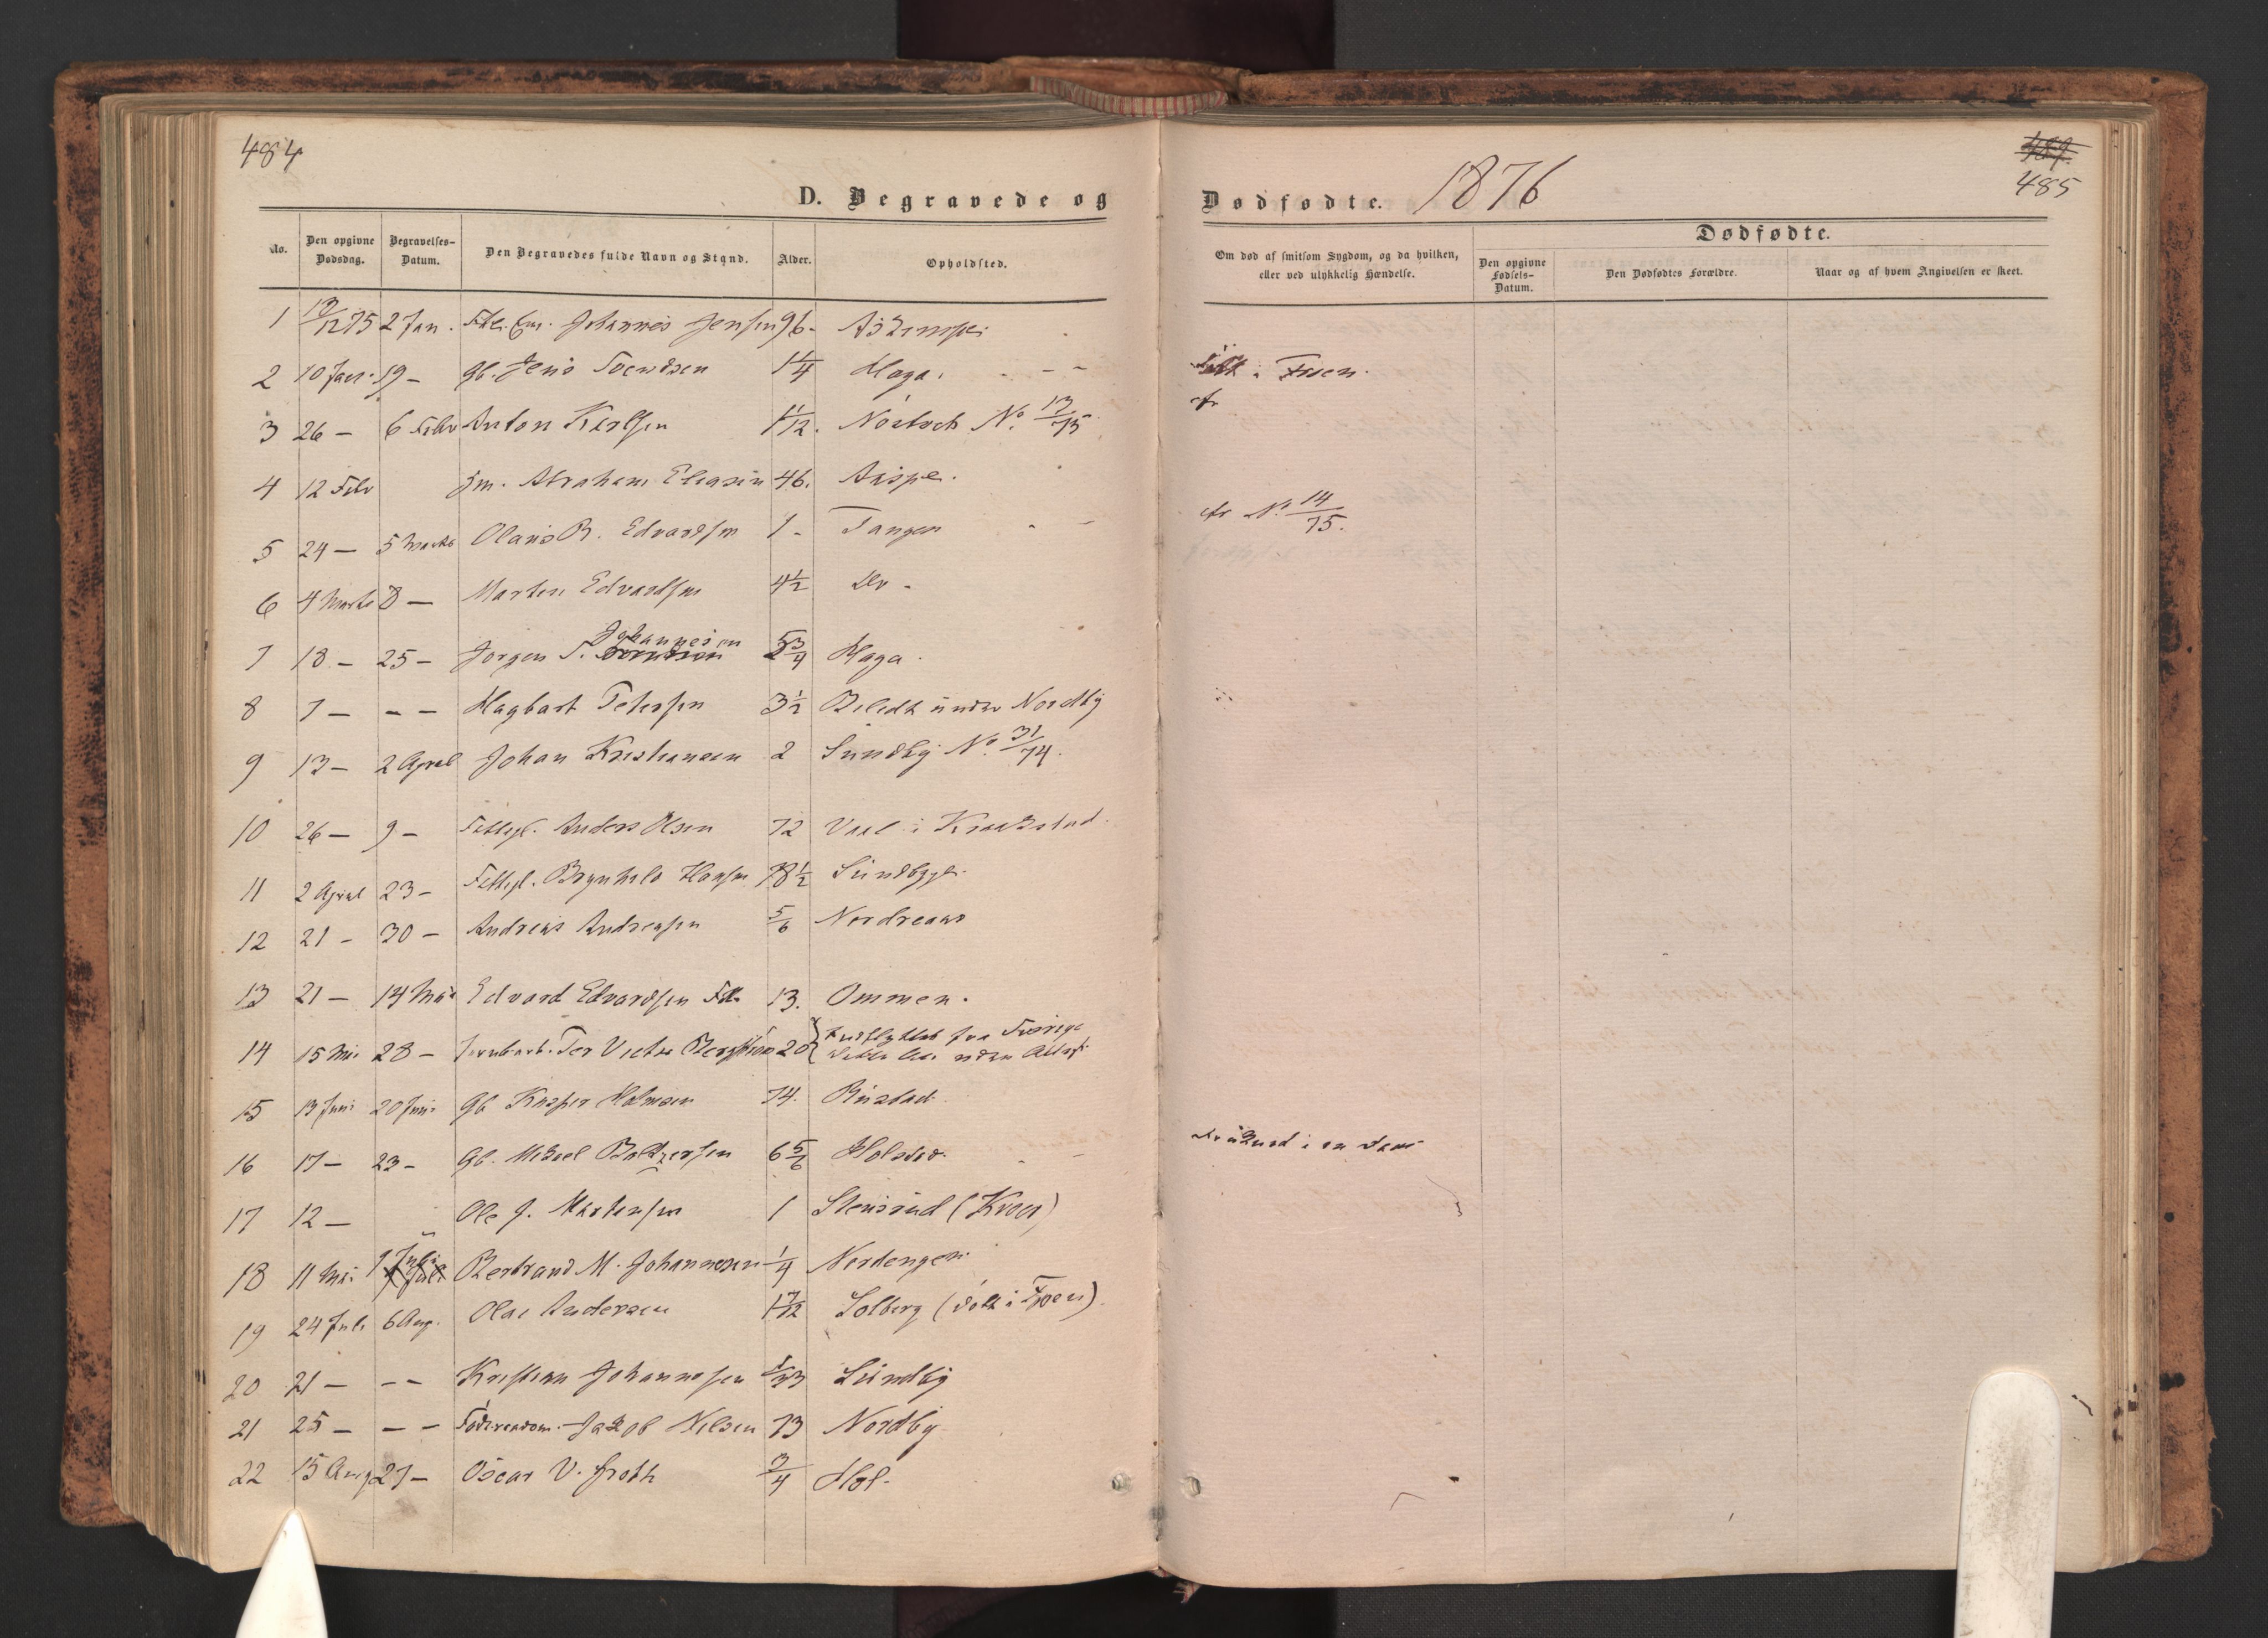 484
489.
485
D. Begravede og
Dødfødte. 1876
No. Den opgivne Dødsdag. Begravelses-Datum. Den Begravedes fulde Navn og Stand. Alder. Opholdsted.
Om død af smitsom Sygdom, og da hvilken, eller ved ulykkelig Hændelse.
Dødfødte.
Den opgivne Fødsels-Datum. Den Dødfødtes Forældre. Naar og af hvem Angivelsen er skeet.
1 19/12 75 2 Jan. Johannes Jensen 96
2 10 Janr. 19 – Gb. Jens Svendsen 1 1/4 Haga.
i Fuen.
3 26 – 6 Febr Anton Karlsen 1 1/12. No. 13/75
cfr
4 12 Febr Gm. Abraham Eliasen 46.
5 24 – 5 Marts Olaus B. Edvardsen 1 – Tangen
cfr No. 14/75.
6 4 Marts 8 – Marten Edvardsen 4 1/2 Do –
7 18 – 25 – Jørgen S. Johannesen 5 3/4 Haga.
8 7 – – – Hagbart Petersen 3 1/2 under Nordby
9 13 – 2 April Johan Kristiansen 2 Sundby No. 31/74.
10 26 – 9 – Anders Olsen 72 i Kraakstad.
11 2 April 23 – Brynhild Hansen 78 1/2
12 21 – 30 – Andreas Andreasen 5/6 Nordreaas
13 21 – 14 Mai Edvard Edvardsen 13. Ommen.
14 15 Mai 28 – Per Victor 20 { Indflyttet fra Sverige
uden Attest.
15 13 Juni 20 Juni Gb Kasper Halvorsen 74. Rustad.
16 17 – 23 – Gb. Mikael Baltzersen 6 5/6
i en
17 12 – Ole J. Martensen 1 Stensrud (Kroer)
18 11 Mai 9 Juli Bertrand M. Johannesen 1/4 Nordengen.
19 24 Juli 6 Aug. Olai Andersen 1 7/12 Solberg (født i Fuen)
20 21 – – – Kristian Johannesen Sundby
21 25 – – – Jakob Nilsen 73 Nordby
22 15 Aug 27 – Oscar V. Groth 3/4 Hol.